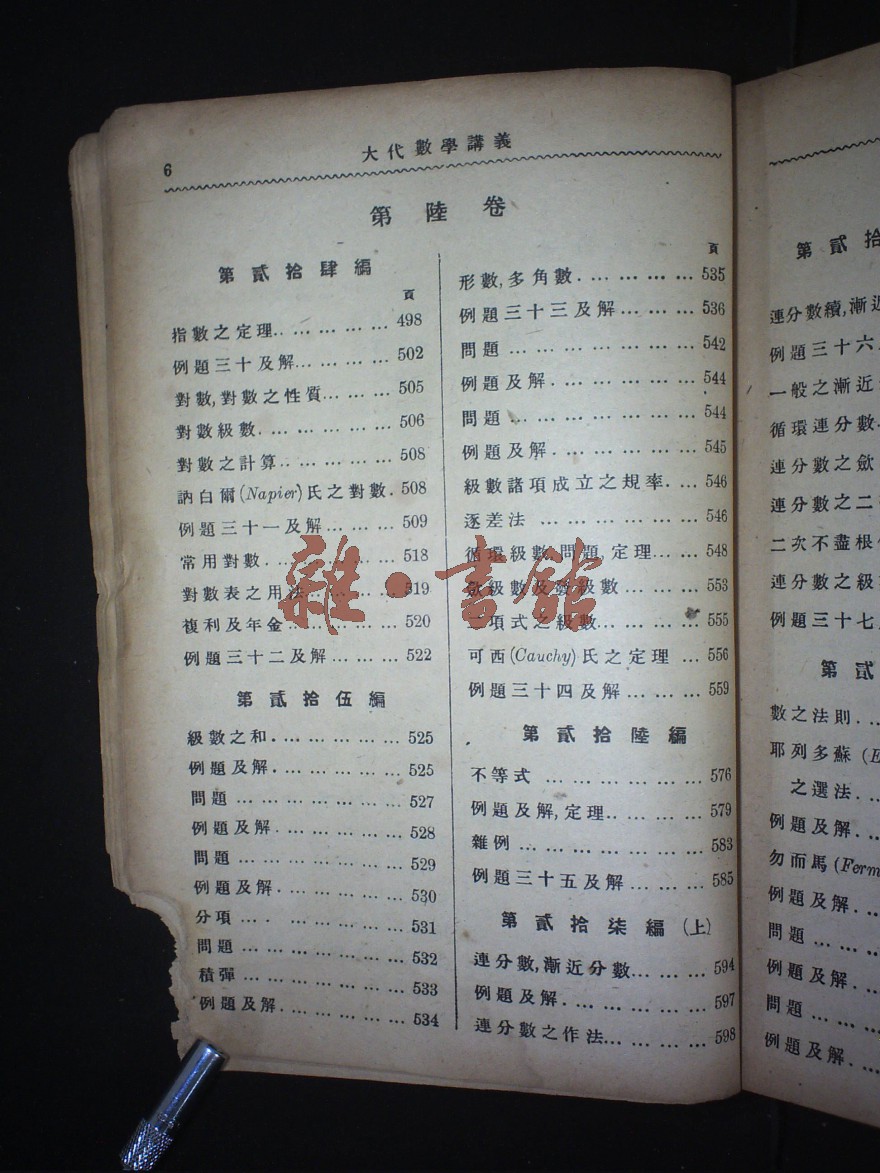 6
大代數學講義
第陸卷
第貳拾肆編
頁
指數之定理 498
例題三十及解 502
對數,對數之性質 505
對數級數 506
對數之計算 508
訥白爾(Napier)氏之對數 508
例題三十一及解 509
常用對數 518
對數表之用法 519
複利及年金 520
例題三十二及解 522
第貳拾伍編
級數之和 525
例題及解 525
問題 527
例題及解 528
問題 529
例題及解 530
分項 531
問題 532
積彈 533
例題及解 534
頁
形數,多角數 535
例題三十三及解 536
問題 542
例題及解 544
問題 544
例題及解 545
級數諸項成立之規率 546
逐差法 546
循環級數,問題,定理 548
斂級數及發級數 553
二項式之級數 555
可西(Cauchy)氏之定理 556
例題三十四及解 559
第貳拾陸編
不等式 576
例題及解,定理 579
雜例 583
例題三十五及解 585
第貳拾柒編(上)
連分數,漸近分數 594
例題及解 597
連分數之作法 598
第貳拾
連分數續,漸近
例題三十六
一般之漸近
循環連分數
連分數之斂
連分數之二
二次不盡根
連分數之級
例題三十七
第貳
數之法則
耶列多蘇(E
之選法
例題及解
勿而馬(Ferm
例題及解
問題
例題及解
問題
例題及解
雜·書館